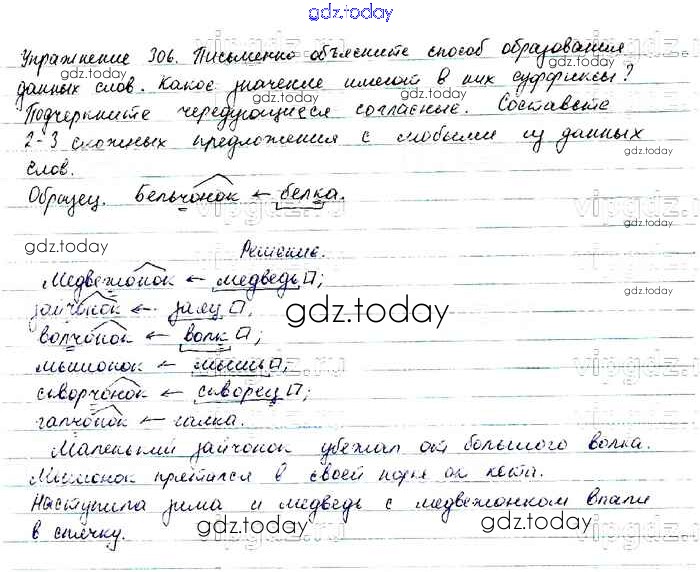 gdz.today
Упражнение 306. Письменно объясните способ образования
данных слов. Какое значение имеют в них суффиксы?
Подчеркните чередующиеся согласные. Составьте
2-3 сложных предложения с любыми из данных
слов.
Образец. Бельчонок ← белка.
Решение.
Медвежонок ← медведь;
зайчонок ← заяц;
волчонок ← волк;
мышонок ← мышь;
скворчонок ← скворец;
галчонок ← галка.
Маленький зайчонок убежал от большого волка.
Мышонок прятался в своей норе от кота.
Наступила зима и медведь с медвежонком впали
в спячку.
gdz.today
gdz.today
gdz.today
gdz.today
gdz.today
gdz.today
gdz.today
gdz.today
gdz.today
gdz.today